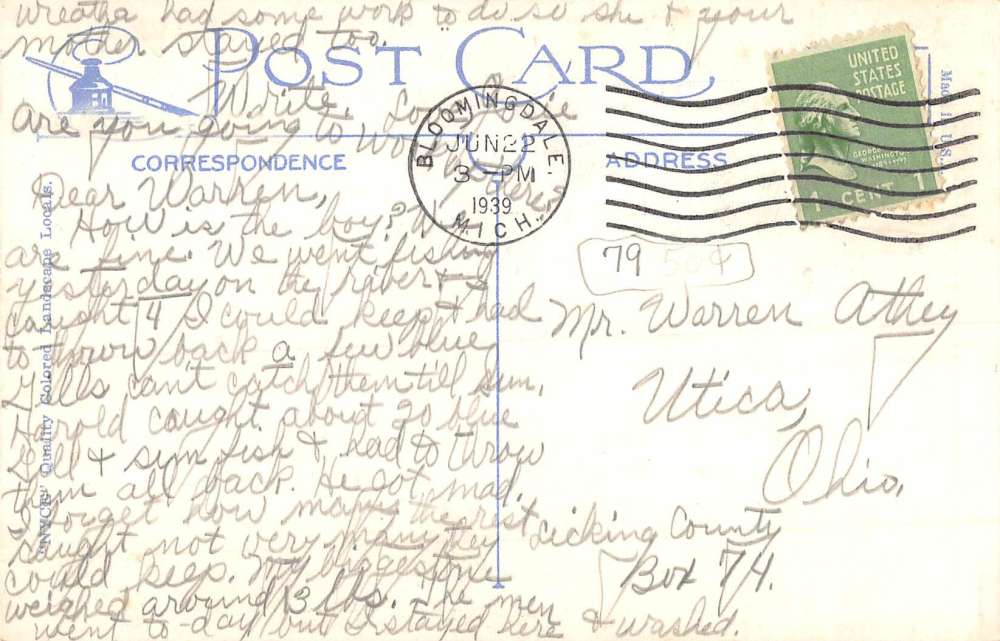 Wreatha had some work to do so she & your
mother stayed too.
POST CARD
Write,
Are you going to
CORRESPONDENCE
ADDRESS
BLOOMINGDALE
JUN 22
3 PM
1939
MICH.
UNITED
STATES
POSTAGE
GEORGE
WASHINGTON
1 CENT 1
Made in U.S.A.
79 50¢
Dear Warren,
How is the boy? We
are fine. We went fishing
yesterday on the raber & I
caught 4 I could keep & had
to throw back a few blue
gills can't catch them till sun.
Harold caught about 20 blue
gill & sun fish & had to throw
them all back. He got mad.
I forget how many the rest
caught not very many they
could keep. My biggest one
weighed around 3 lbs. The men
went to-day but I stayed here & washed.
Mr. Warren Athey
Utica,
Ohio.
Licking County
Box 74.
"NYCE" Quality Colored Landscape Locals.